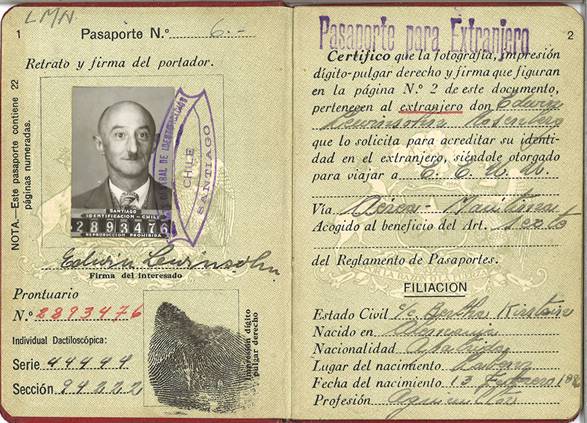 LMN
1
Pasaporte N.º 6.-
Retrato y firma del portador.
NOTA.—Este pasaporte contiene 22
páginas numeradas.
CHILE
SANTIAGO
SANTIAGO
IDENTIFICACION - CHILE
2893476
REPRODUCCION PROHIBIDA
Edwin Lewinsohn
Firma del interesado
Prontuario
N.º 2893476
Individual Dactiloscópica:
Serie 44444
Sección 24222
Impresión dígito
pulgar derecho
Pasaporte para Extranjero
2
Certifico que la fotografía, impresión
dígito-pulgar derecho y firma que figuran
en la página N.º 2 de este documento,
pertenecen al extranjero don Edwin
Lewinsohn
que lo solicita para acreditar su identi-
dad en el extranjero, siéndole otorgado
para viajar a E. E. U. U.
Vía Aérea Marítima
Acogido al beneficio del Art. Sexto
del Reglamento de Pasaportes.
FILIACION
Estado Civil Bertha
Nacido en Alemania
Nacionalidad Apátrida
Lugar del nacimiento
Fecha del nacimiento 13 Febrero
Profesión